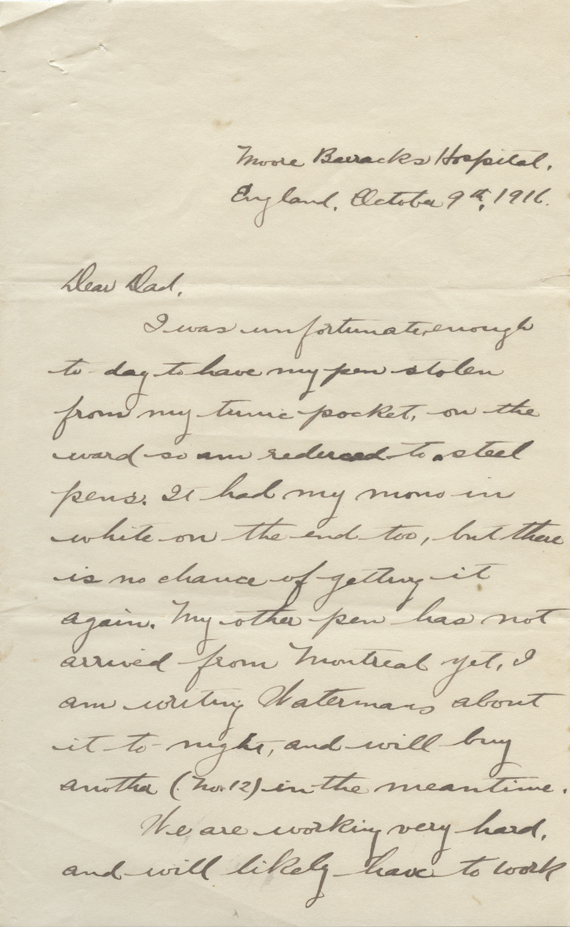 Moore Barracks Hospital,
England, October 9th, 1916.
Dear Dad,
I was unfortunate enough
to-day to have my pen stolen
from my tunic pocket, on the
ward so am reduced to steel
pens. It had my mono in
white on the end too, but there
is no chance of getting it
again. My other pen has not
arrived from Montreal yet, I
am writing Watermans about
it to-night, and will buy
another (No. 12) in the meantime.
We are working very hard,
and will likely have to work